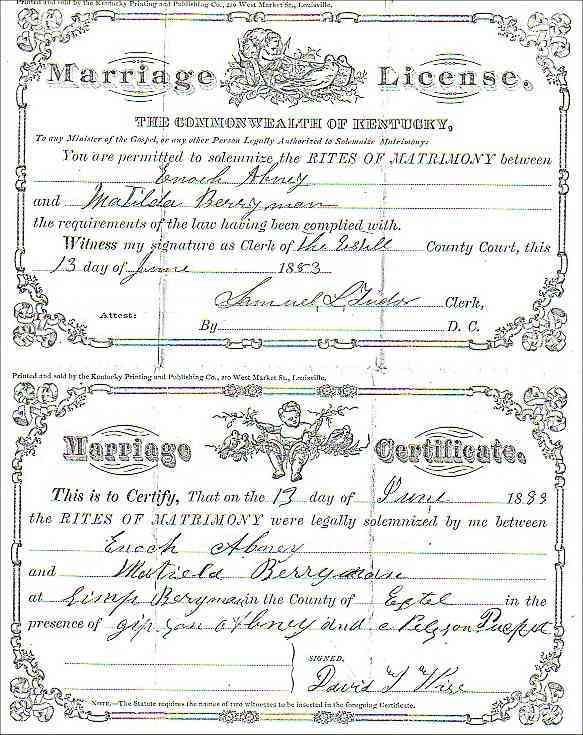 Printed and sold by the Kentucky Printing and Publishing Co., 210 West Market St., Louisville.
Marriage License.
THE COMMONWEALTH OF KENTUCKY,
To any Minister of the Gospel, or any other Person Legally Authorized to Solemnize Matrimony:
You are permitted to solemnize the RITES OF MATRIMONY between
Enoch Abney
and Matilda Berryman
the requirements of the law having been complied with.
Witness my signature as Clerk of the Estill County Court, this
13 day of June 1883
Samuel L. Tudor Clerk,
Attest: By D. C.
Printed and sold by the Kentucky Printing and Publishing Co., 210 West Market St., Louisville.
Marriage Certificate.
This is to Certify, That on the 13 day of June 1883
the RITES OF MATRIMONY were legally solemnized by me between
Enoch Abney
and Matield Berryman
at Beryman in the County of Estel in the
presence of Abney and
SIGNED,
David T Wise
NOTE.—The Statute requires the names of two witnesses to be inserted in the foregoing Certificate.